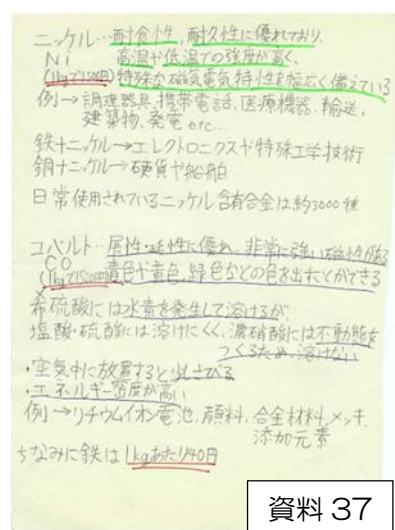 ニッケル…耐食性、耐久性に優れており、
Ni 高温や低温での強度が高く、
(1kgで1500円)特殊な磁気電気特性を幅広く備えている
例→調理器具、携帯電話、医療機器、輸送、
建築物、発電etc…
鉄+ニッケル→エレクトロニクスや特殊工学技術
銅+ニッケル→硬貨や船舶
日常使用されているニッケル含有合金は約3000種
コバルト…展性・延性に優れ、非常に強い磁性がある
CO
青色や黄色、緑色などの色を出すことができる
希硫酸には水素を発生して溶けるが、
塩酸・硫酸には溶けにくく、濃硝酸には不動態を
つくるため、溶けない
・空気中に放置すると少しさびる
・エネルギー密度が高い
例→リチウムイオン電池、顔料、合金材料、メッキ、
添加元素
ちなみに鉄は1kgあたり40円
資料 37